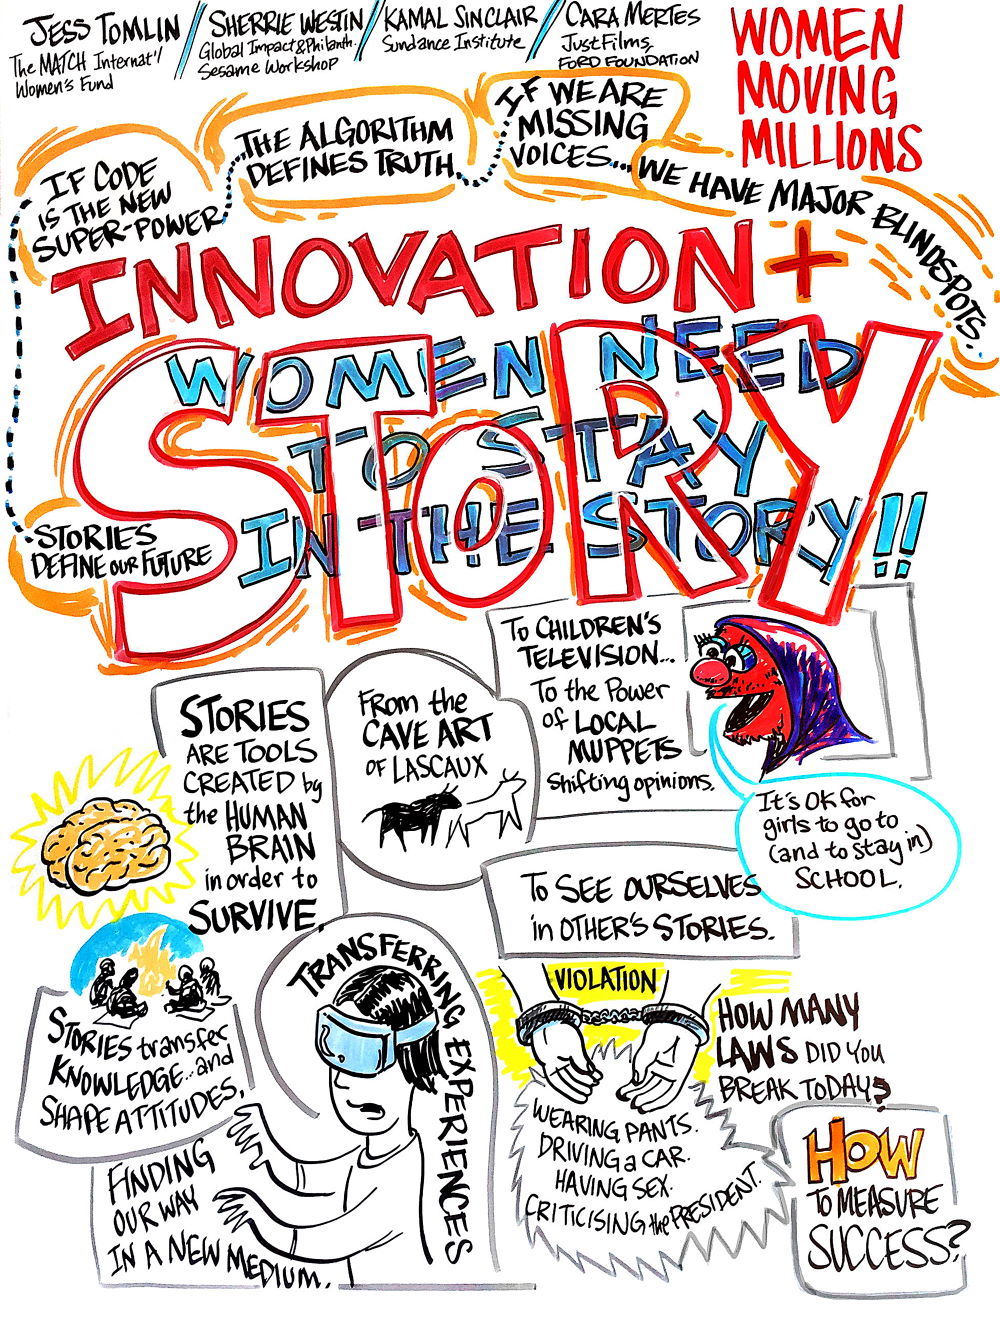 JESS TOMLIN
The MATCH Internat'l
Women's Fund
SHERRIE WESTIN
Global Impact & Philanth.
Sesame Workshop
KAMAL SINCLAIR
Sundance Institute
CARA MERTES
JustFilms,
FORD FOUNDATION
WOMEN
MOVING
MILLIONS
IF CODE
IS THE NEW
SUPER-POWER
THE ALGORITHM
DEFINES TRUTH
IF WE ARE
MISSING
VOICES...
WE HAVE MAJOR BLINDSPOTS.
INNOVATION +
STORY
WOMEN NEED
TO STAY
IN THE STORY!!
STORIES
DEFINE OUR FUTURE
STORIES
ARE TOOLS
CREATED by
the HUMAN
BRAIN
in order to
SURVIVE.
From the
CAVE ART
OF LASCAUX
To CHILDREN'S
TELEVISION...
To the Power
of LOCAL
MUPPETS
shifting opinions.
It's OK for
girls to go to
(and to stay in)
SCHOOL.
To SEE OURSELVES
in OTHER'S STORIES.
STORIES transfer
KNOWLEDGE... and
SHAPE ATTITUDES.
FINDING
OUR WAY
IN A NEW MEDIUM.
TRANSFERRING EXPERIENCES
VIOLATION
WEARING PANTS.
DRIVING a CAR.
HAVING SEX.
CRITICISING the PRESIDENT.
HOW MANY
LAWS DID YOU
BREAK TODAY?
HOW
TO MEASURE
SUCCESS?